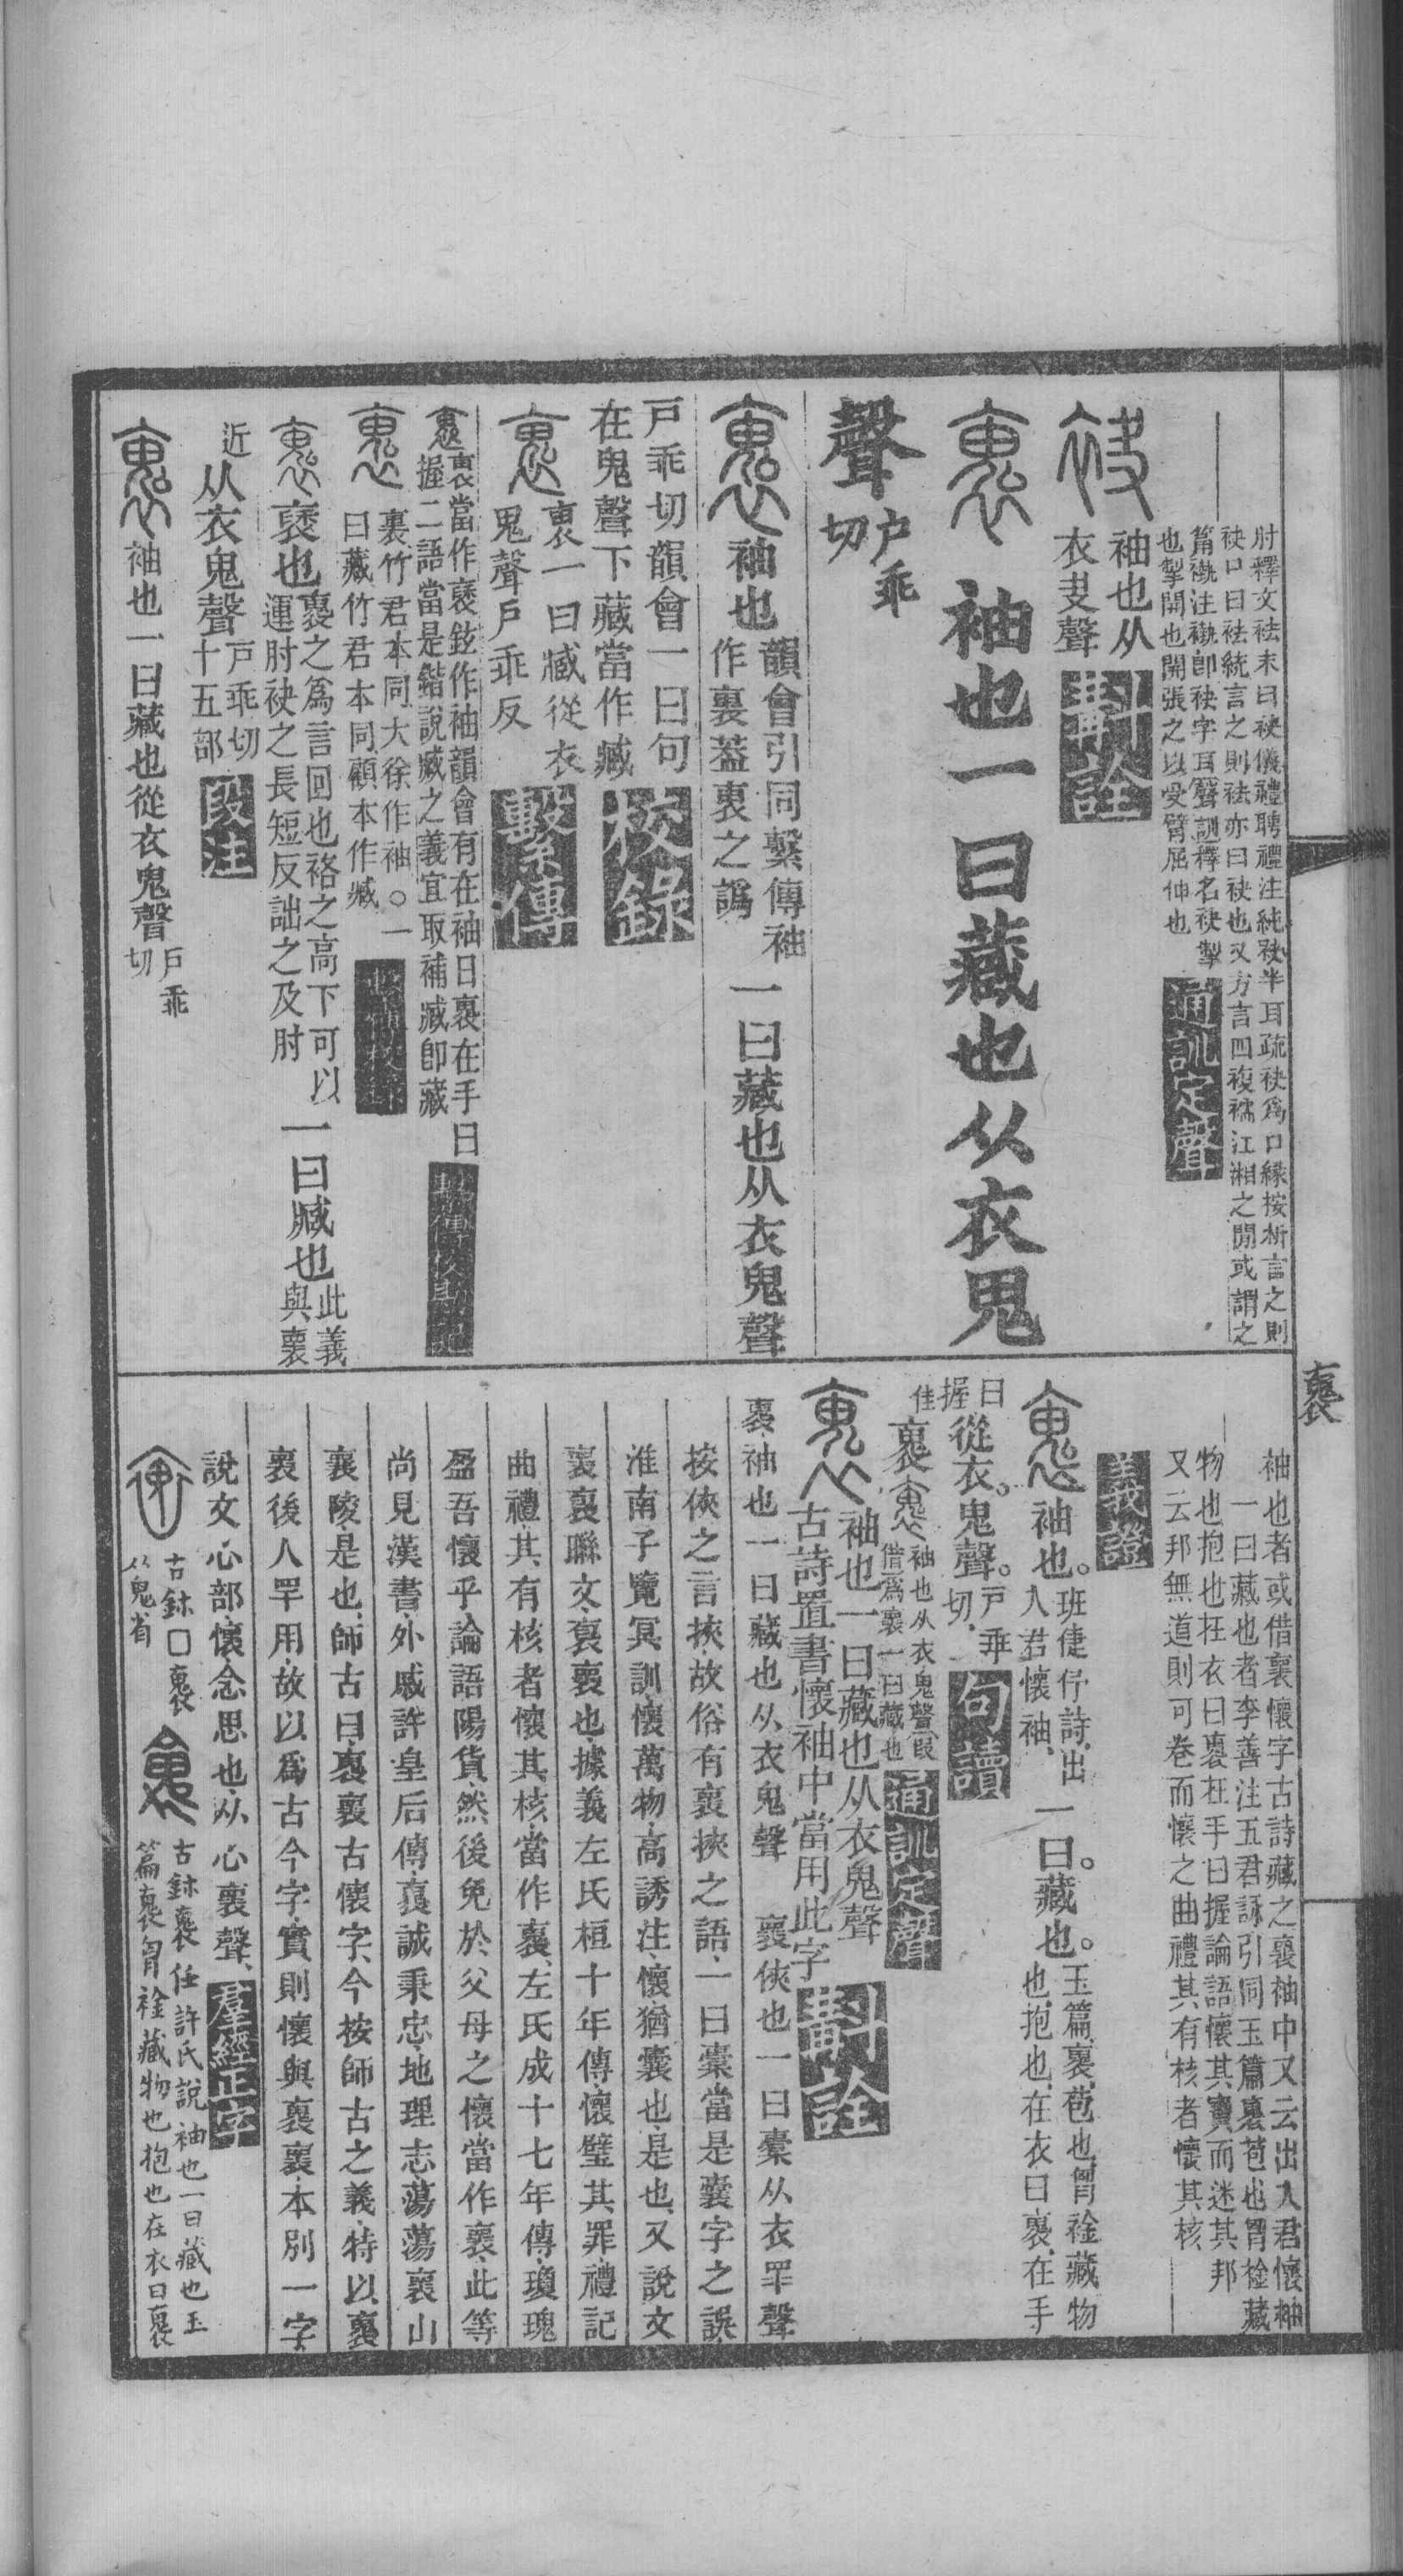 肘釋文袪末曰袂儀禮聘禮注純袂半耳疏袂爲口緣按析言之則
袂口曰袪統言之則袪亦曰袂也又方言四複襦江湘之間或謂之
筩褹注褹卽袂字耳聲訓釋名袂掣
也掣開也開張之以受臂屈伸也
通訓定聲
袖也从
衣夬聲
斠詮
褢
袖也一曰藏也从衣鬼
聲
户乖
切
袖也
韻會引同繫傳袖
作裏葢褱之譌
一曰藏也从衣鬼聲
戸乖切韻會一曰句
在鬼聲下藏當作臧
校錄
褱一曰臧從衣
鬼聲戶乖反
繫傳
褱當作褎鉉作袖韻會有在袖曰褢在手曰
握二語當是鍇說臧之義宜取補臧卽藏
裏竹君本同大徐作袖○一
曰藏竹君本同顧本作臧
褎也
褢之爲言回也袼之高下可以
運肘袂之長短反詘之及肘
一曰臧也
此義
與褱
近
从衣鬼聲
戸乖切
十五部
段注
袖也一曰藏也從衣鬼聲
戸乖
切
褢
袖也者或借褱懷字古詩藏之褱袖中又云出入君懷袖
一曰藏也者李善注五君詠引同玉篇褢苞也胷捦藏
物也抱也在衣曰褢在手曰握論語懷其寶而迷其邦
又云邦無道則可卷而懷之曲禮其有核者懷其核
義證
袖也。
班倢伃詩、出
入君懷袖、
一曰。藏也。
玉篇、褢、苞也、胷捦藏物
也、抱也、在衣曰褢、在手
曰
握
從衣。鬼聲。
戸乖
切、
句讀
佳
褢
袖也从衣鬼聲叚
借爲褱一曰藏也
通訓定聲
袖也一曰藏也从衣鬼聲
古詩置書懷袖中當用此字
斠詮
褢、袖也一曰藏也从衣鬼聲 褱俠也一曰橐从衣眔聲
按俠之言挾、故俗有褱挾之語、一曰橐、當是囊字之誤、
淮南子覽冥訓、懷萬物、高誘注、懷猶囊也、是也、又說文
褢褱聯文、褢褱也、據義左氏桓十年傳、懷璧其罪、禮記
曲禮、其有核者懷其核、當作褢、左氏成十七年傳、瓊瑰
盈吾懷乎論語陽貨、然後免於父母之懷當作褱、此等
尚見漢書、外戚許皇后傳、褱誠秉忠、地理志、蕩蕩褱山
襄陵、是也、師古曰、褱褱古懷字、今按師古之義、特以褢
褱後人罕用、故以爲古今字、實則懷與褢褱、本別一字
說文、心部、懷、念思也、从心褱聲、
羣經正字
古鉢口褢
从鬼省
古鉢褢任許氏說袖也一曰藏也玉
篇褢胷捦藏物也抱也在衣曰褢